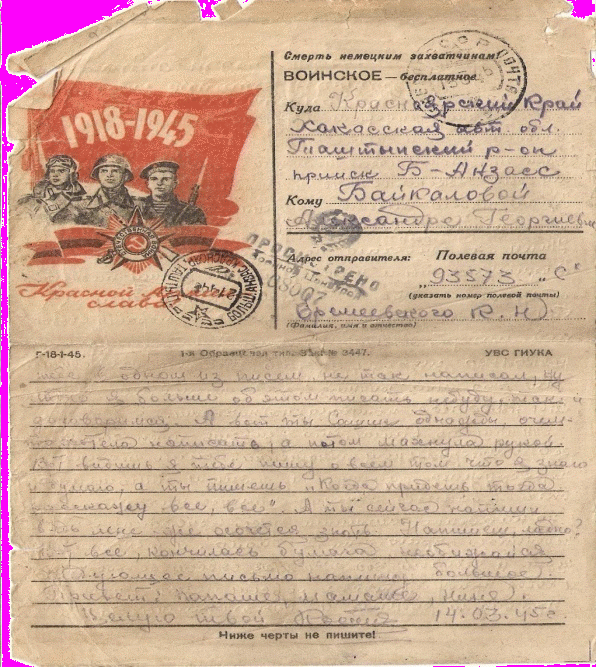 Смерть немецким захватчикам!
ВОИНСКОЕ — бесплатное
1918-1945
Красной Армии слава!
Куда Красноярский Край
Хакасская авт. обл.
Таштыпский р-он
прииск Б-Анзасс
Кому Байкаловой
Александре Георгиевне
ПРОСМОТРЕНО
Военной Цензурой
Адрес отправителя: Полевая почта
„93573" „С"
(указать номер полевой почты)
(Фамилия, имя и отчество)
Г-18-1-45. 1-я Образцовая тип. Зак. № 3447. УВС ГИУКА
в одном из писем, не так написал, ну
что я больше об этом писать не буду, так и
договоримся. А вот ты Сашик однажды очем-
то хотела написать, а потом махнула рукой.
Вот видишь я тебе пишу о всем том что я знаю
и думаю, а ты пишешь „Когда приедешь тогда
расскажу все, все". А ты сейчас напиши
ведь мне же хочется знать. Напишешь, ладно?
Вот все, кончилась бумага
Следующее письмо напишу большое.
Привет: папаше, мамаше, Нине.
Целую твой 14.03.45 г.
Ниже черты не пишите!